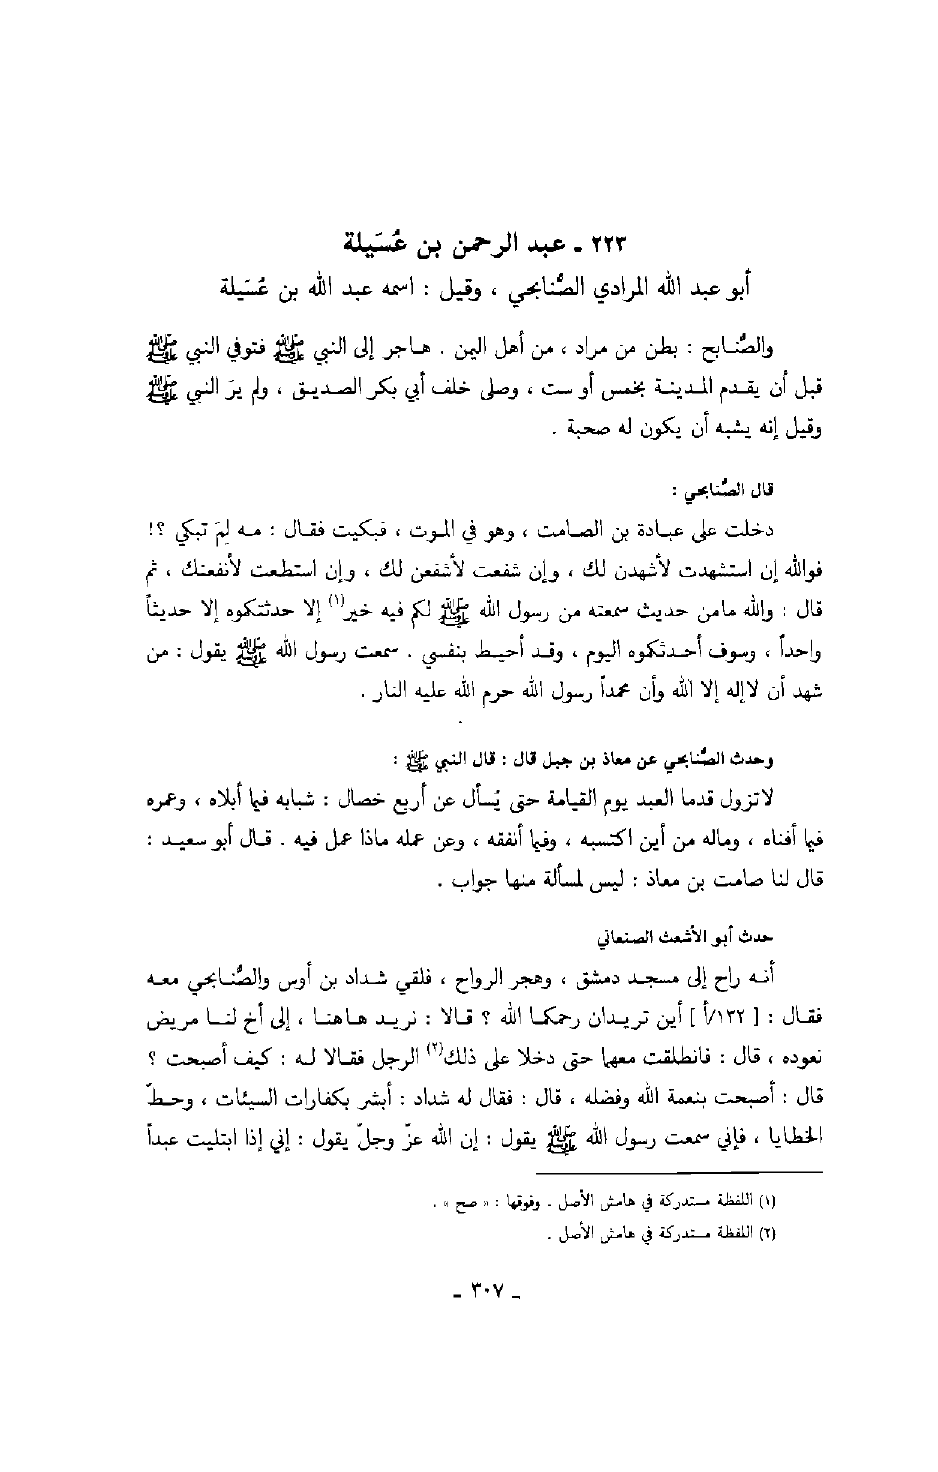 ٢٢٣ ـ عبد الرحمن بن عُسَيلة
أبو عبد الله المرادي الصُّنابحي ، وقيل : اسمه عبد الله بن عُسَيلة
والصُّنابح : بطن من مراد ، من أهل اليمن . هاجر إلى النبي ﷺ فتوفي النبي ﷺ
قبل أن يقدم المدينة بخمس أو ست ، وصلى خلف أبي بكر الصديق ، ولم يرَ النبي ﷺ
وقيل إنه يشبه أن يكون له صحبة .
قال الصُّنابحي :
دخلت على عبادة بن الصامت ، وهو في الموت ، فبكيت فقال : مه لِمَ تبكي ؟!
فوالله إن استشهدت لأشهدن لك ، وإن شفعت لأشفعن لك ، وإن استطعت لأنفعنك ، ثم
قال : والله مامن حديث سمعته من رسول الله ﷺ لكم فيه خير(١) إلا حدثتكوه إلا حديثاً
واحداً ، وسوف أحدثكوه اليوم ، وقد أحيط بنفسي . سمعت رسول الله ﷺ يقول : من
شهد أن لاإله إلا الله وأن محمداً رسول الله حرم الله عليه النار .
وحدث الصُّنابحي عن معاذ بن جبل قال : قال النبي ﷺ :
لاتزول قدما العبد يوم القيامة حتى يُسأل عن أربع خصال : شبابه فيما أبلاه ، وعمره
فيما أفناه ، وماله من أين اكتسبه ، وفيما أنفقه ، وعن عمله ماذا عمل فيه . قال أبو سعيد :
قال لنا صامت بن معاذ : ليس لمسألة منها جواب .
حدث أبو الأشعث الصنعاني
أنه راح إلى مسجد دمشق ، وهجر الرواح ، فلقي شداد بن أوس والصُّنابحي معه
فقال : [ ١٣٢/أ ] أين تريدان رحمكما الله ؟ قالا : نريد هاهنا ، إلى أخ لنا مريض
نعوده ، قال : فانطلقت معهما حتى دخلا على ذلك(٢) الرجل فقالا له : كيف أصبحت ؟
قال : أصبحت بنعمة الله وفضله ، قال : فقال له شداد : أبشر بكفارات السيئات ، وحطّ
الخطايا ، فإني سمعت رسول الله ﷺ يقول : إن الله عزّ وجلّ يقول : إني إذا ابتليت عبداً
(١) اللفظة مستدركة في هامش الأصل . وفوقها : « صح » .
(٢) اللفظة مستدركة في هامش الأصل .
ـ ٣٠٧ ـ